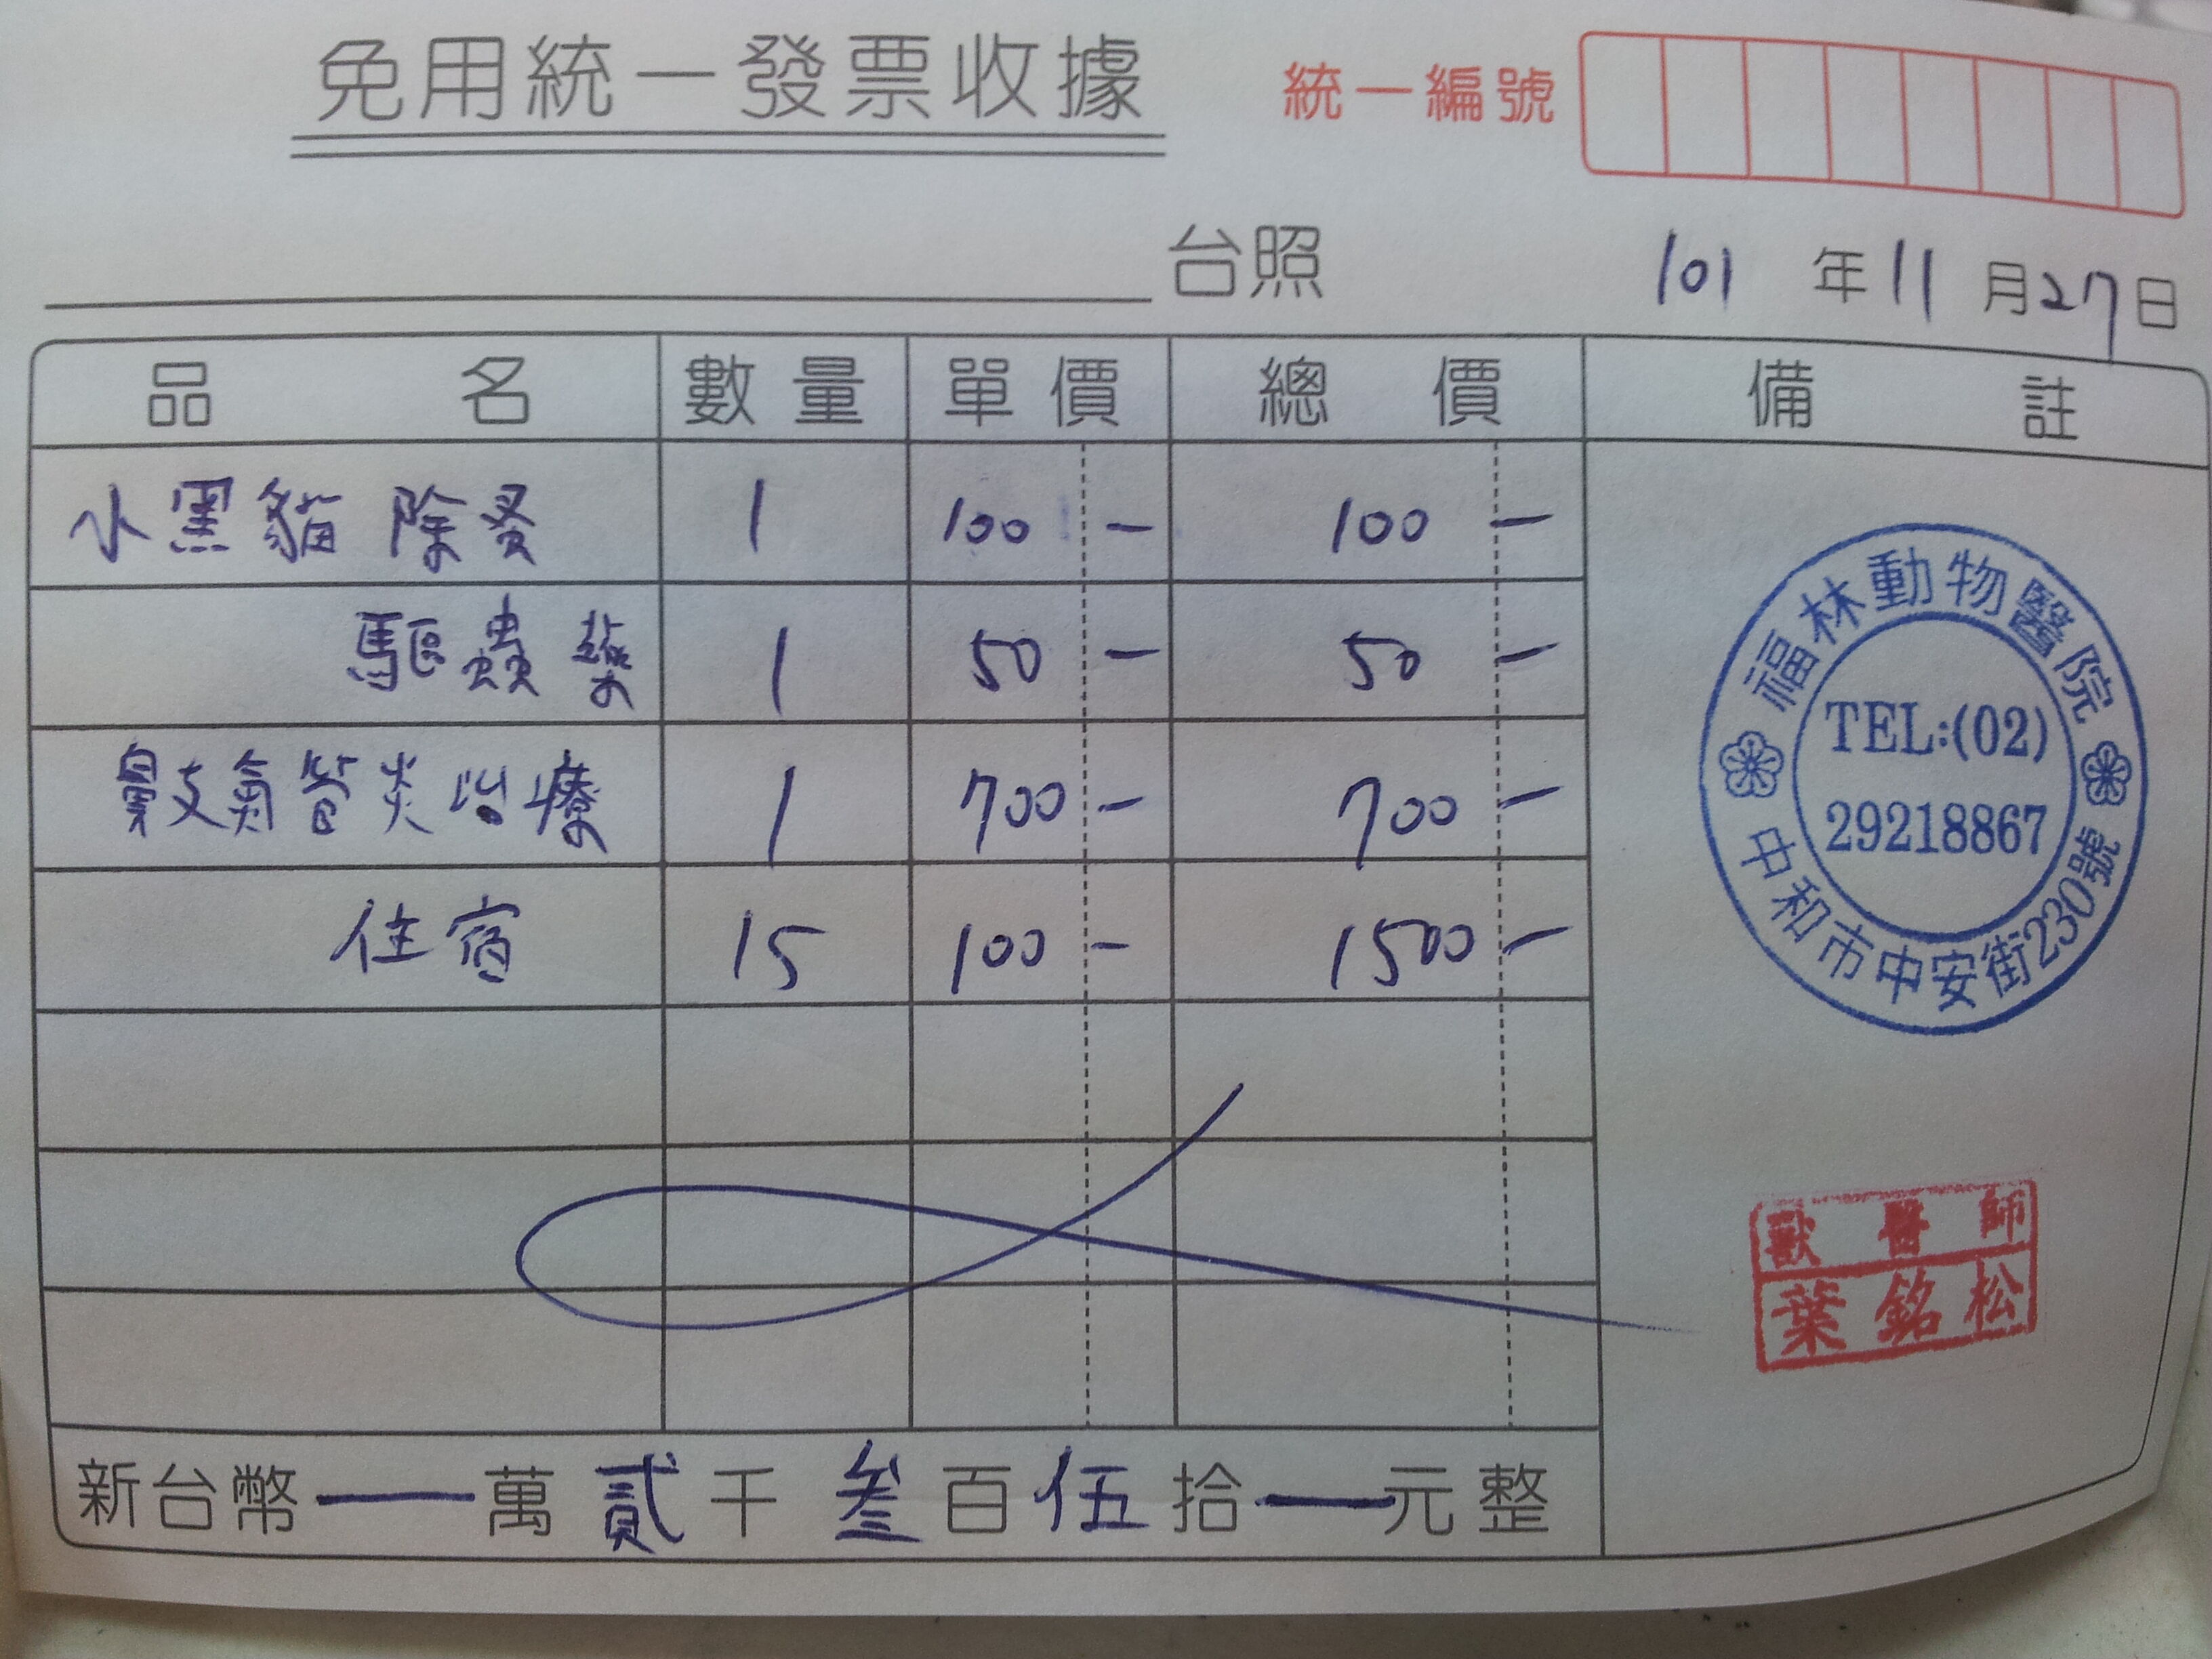 免用統一發票收據
統一編號
台照
101 年 11 月 27 日
品名 數量 單價 總價 備註
小黑貓 除蚤 1 100 - 100 -
驅蟲藥 1 50 - 50 -
鼻支氣管炎治療 1 700 - 700 -
住宿 15 100 - 1500 -
福林動物醫院
TEL:(02)
29218867
中和市中安街230號
獸醫師
葉銘松
新台幣 — 萬 貳 千 叁 百 伍 拾 — 元整